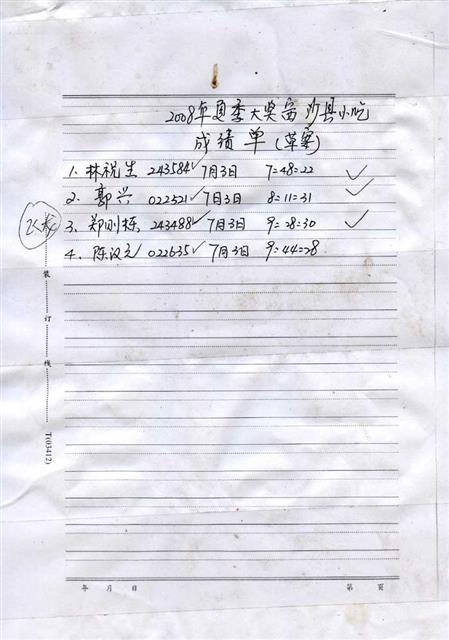 2008年夏季大奖宙 沙县小吃
成绩单(草案)
1. 林祝生 243584✓ 7月3日 7=48=22 ✓
2. 郭兴 022321✓ 7月3日 8=11=31 ✓
3. 郑则栋 243488✓ 7月3日 9=28=30 ✓
4. 陈汉 022635✓ 7月3日 9=44=28
装
订
线
T(03412)
年 月 日 第 页